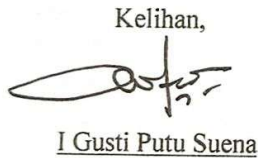 Kelihan,
I Gusti Putu Suena